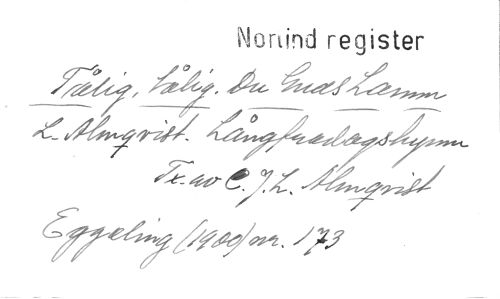 Nonind register
Tålig, tålig. Du Guds Lamm
L. Almqvist. Långfredagshymn
Tx. av C. J. L. Almqvist
Eggeling (1900) nr. 173